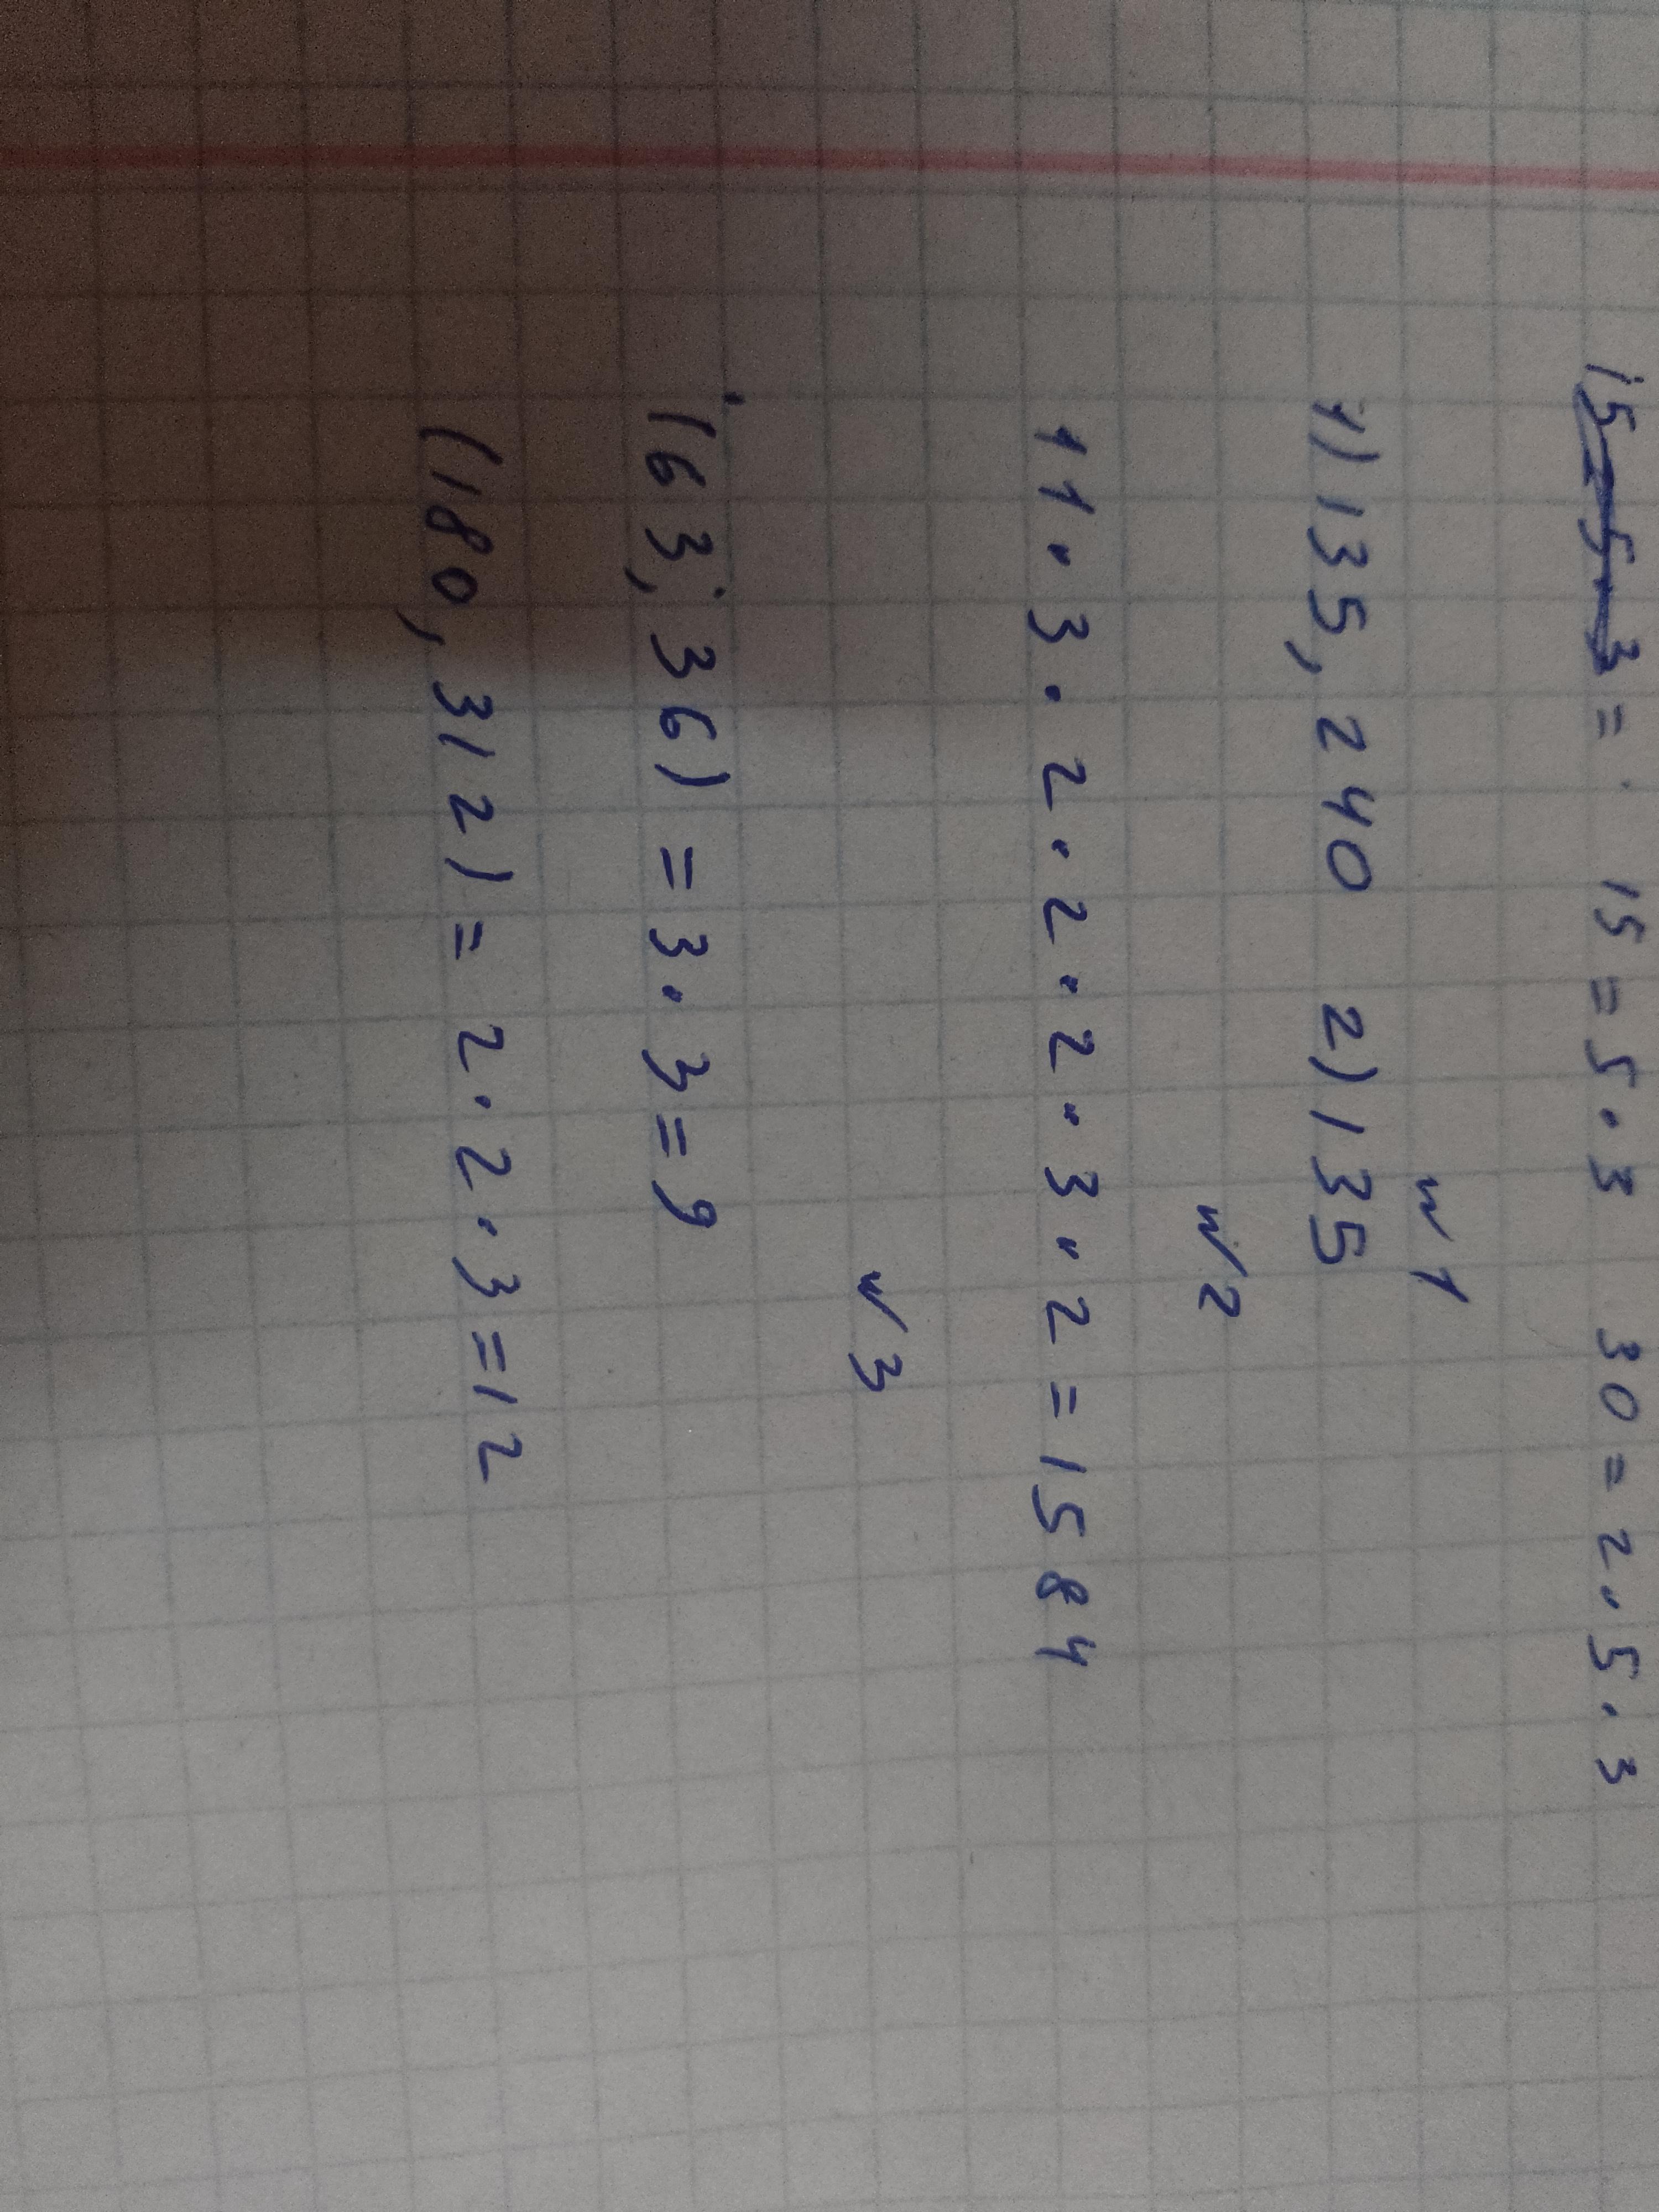 = 15 = 5 · 3 30 = 2 · 5 · 3
№1
1) 135, 240 2) 135
№2
11 · 3 · 2 · 2 · 2 · 3 · 2 = 1584
№3
(63, 36) = 3 · 3 = 9
(180, 312) = 2 · 2 · 3 = 12